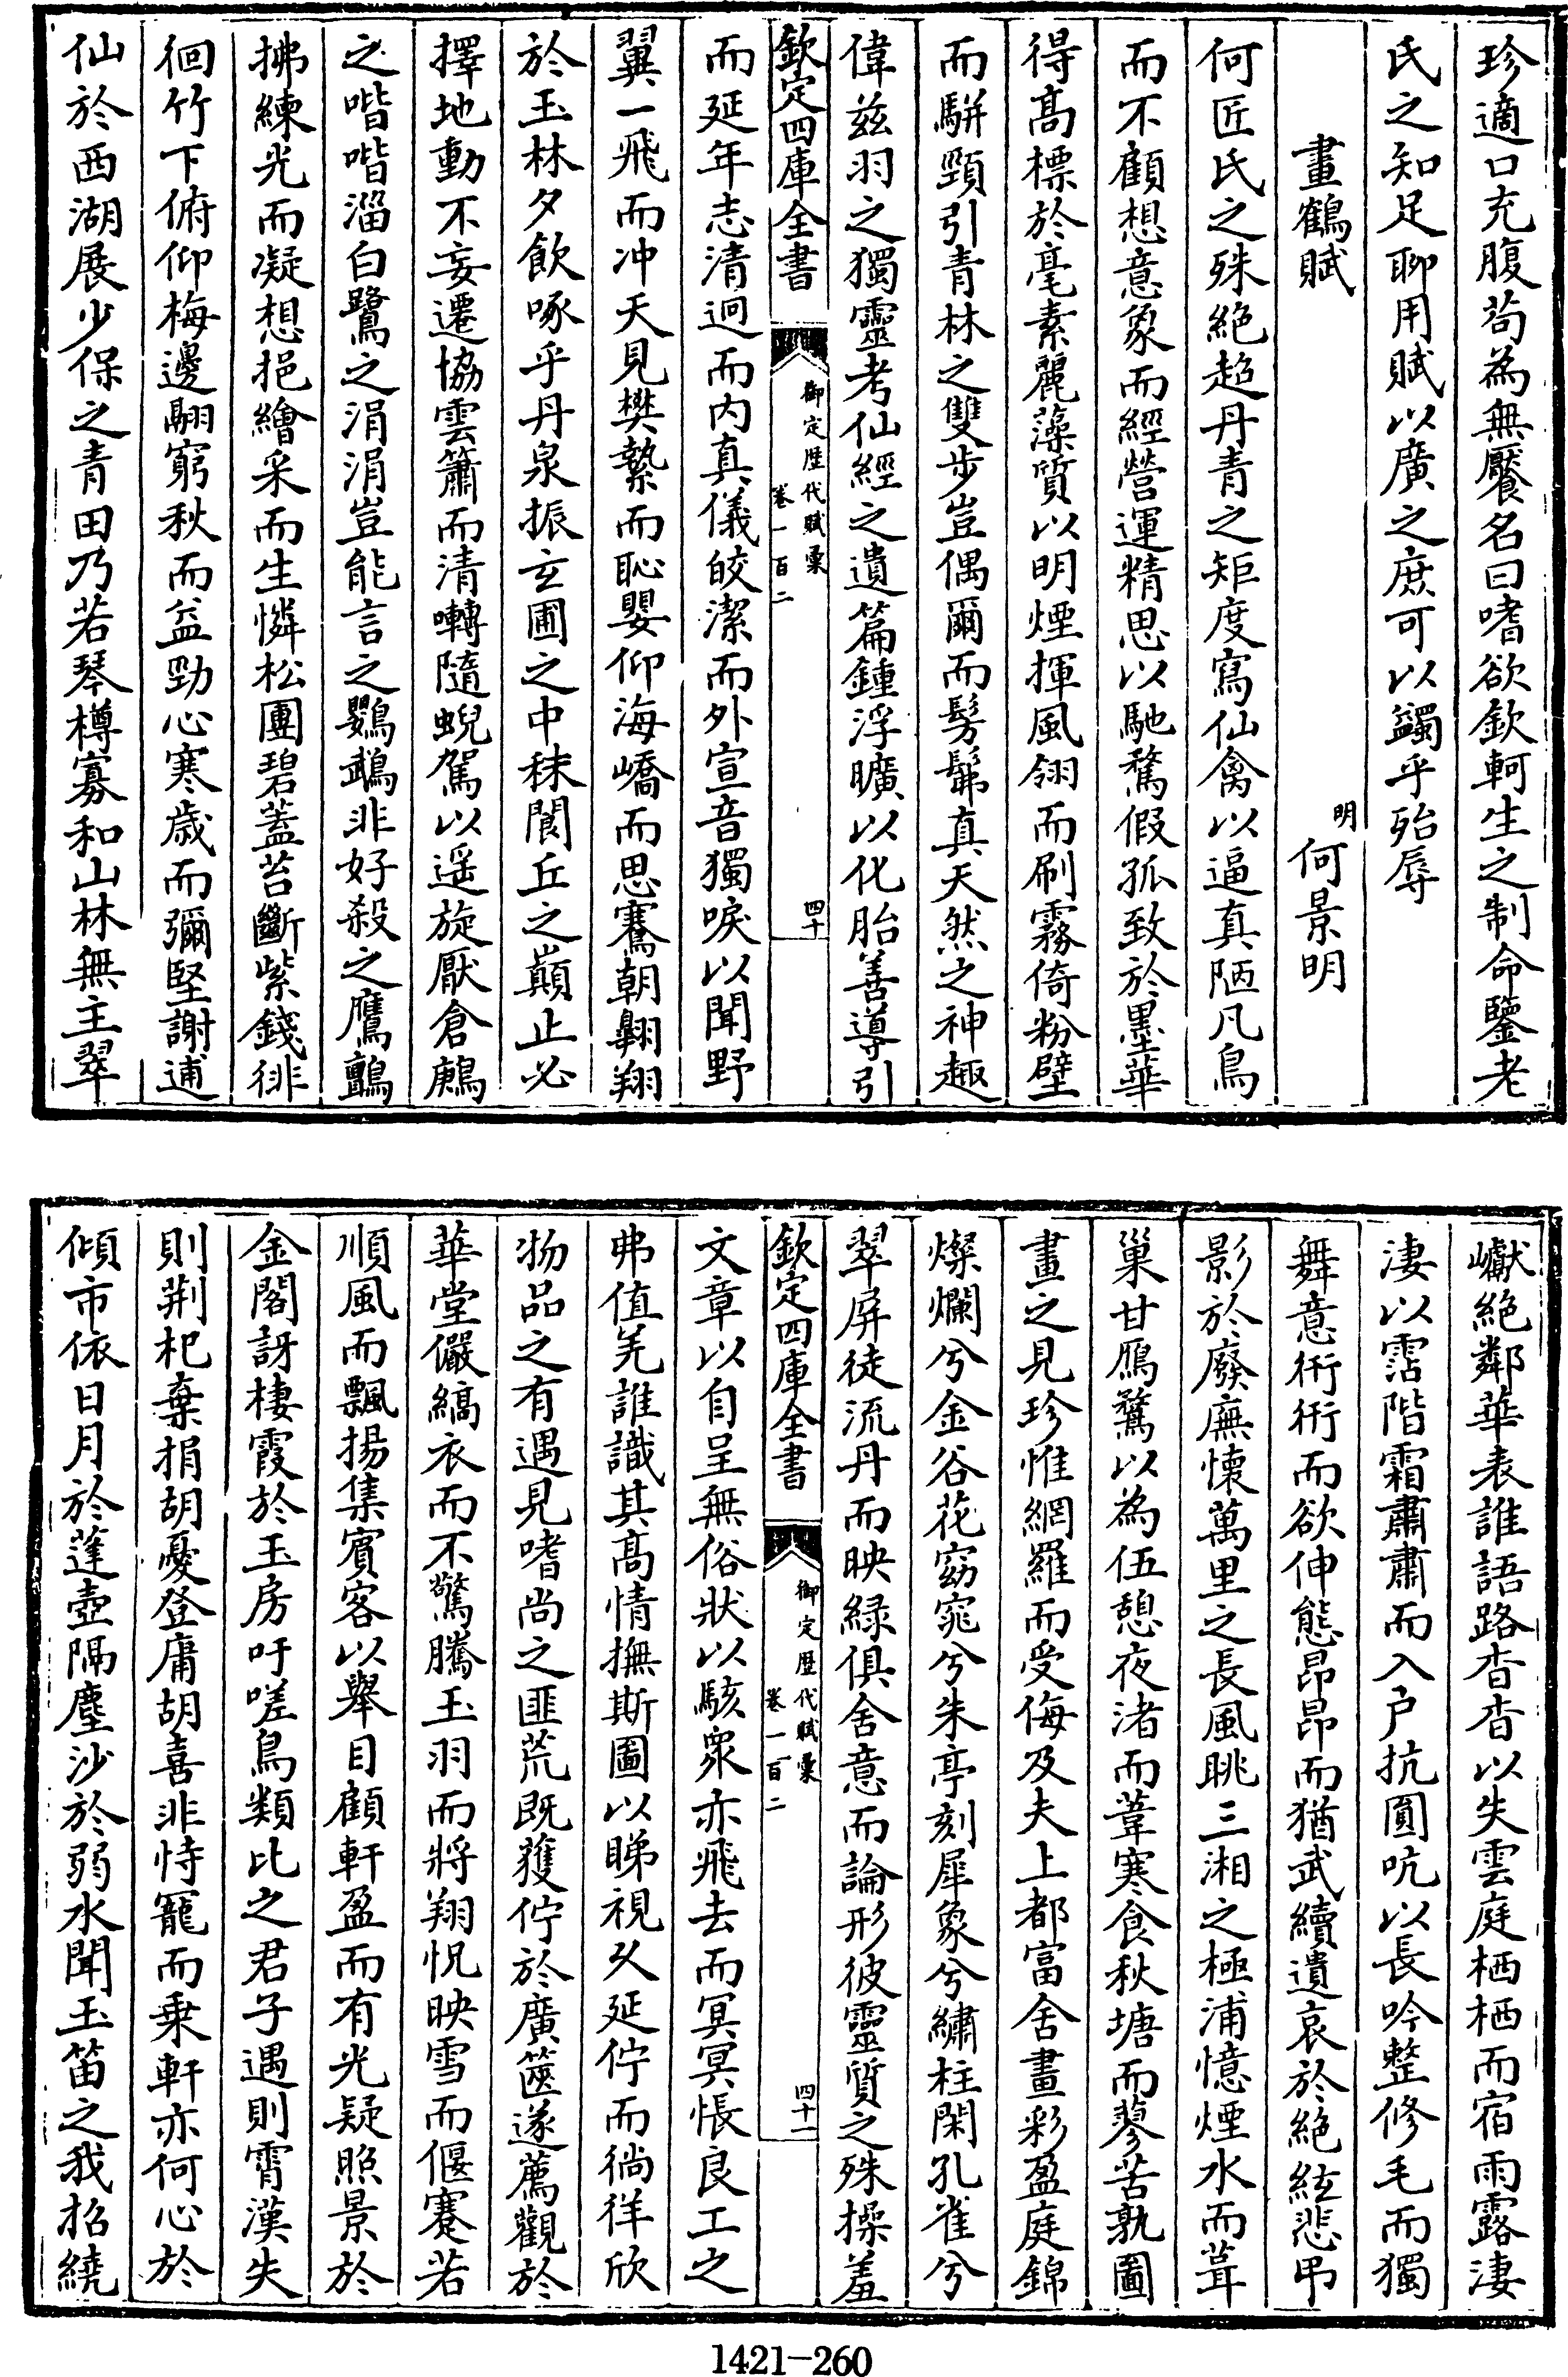 珍適口充腹苟為無饜名曰嗜欲欽軻生之制命鑒老
氏之知足聊用賦以廣之庶可以蠲乎殆辱
畫鶴賦
明何景明
何匠氏之殊絶超丹青之矩度寫仙禽以逼真陋凡鳥
而不顧想意象而經營運精思以馳騖假孤致於墨華
得高標於毫素麗藻質以明煙揮風翎而刷霧倚粉壁
而駢頸引青林之雙步豈偶爾而髣髴真天然之神趣
偉兹羽之獨靈考仙經之遺篇鍾浮曠以化胎善導引
欽定四庫全書
御定歴代賦彙
卷一百二
四十
而延年志清迥而内真儀皎潔而外宣音獨唳以聞野
翼一飛而冲天見樊縶而恥嬰仰海嶠而思騫朝翺翔
於玉林夕飲啄乎丹泉振玄圃之中秣閬丘之巔止必
擇地動不妄遷協雲簫而清囀隨蜺駕以遥旋厭倉鶊
之喈喈溜白鷺之涓涓豈能言之鸚鵡非好殺之鷹鸇
拂練光而凝想挹繪采而生憐松團碧蓋苔斷紫錢徘
徊竹下俯仰梅邊翮窮秋而益勁心寒歲而彌堅謝逋
仙於西湖展少保之青田乃若琴樽寡和山林無主翠
巘絶鄰華表誰語路杳杳以失雲庭栖栖而宿雨露淒
淒以霑階霜肅肅而入户抗圓吭以長吟整修毛而獨
舞意衎衎而欲伸態昂昂而猶武續遺哀於絶絃悲弔
影於廢廡懷萬里之長風眺三湘之極浦憶煙水而葺
巢甘鴈鶩以為伍憩夜渚而葦寒食秋塘而蓼苦孰圖
畫之見珍惟網羅而受侮及夫上都富舍畫彩盈庭錦
燦爛兮金谷花窈窕兮朱亭刻犀象兮繡柱閑孔雀兮
翠屏徒流丹而映緑俱舍意而論形彼靈質之殊操羞
欽定四庫全書
御定歴代賦彙
卷一百二
四十一
文章以自呈無俗狀以駭衆亦飛去而冥冥悵良工之
弗值羌誰識其高情撫斯圖以睇視久延佇而徜徉欣
物品之有遇見嗜尚之匪荒既獲佇於廣筵遂薦觀於
華堂儼縞衣而不驚騰玉羽而將翔怳映雪而偃蹇若
順風而飄揚集賓客以舉目顧軒盈而有光疑照景於
金閣訝棲霞於玉房吁嗟鳥類比之君子遇則霄漢失
則荆杞棄捐胡憂登庸胡喜非恃寵而乗軒亦何心於
傾市依日月於蓬壺隔塵沙於弱水聞玉笛之我招繞
1421-260